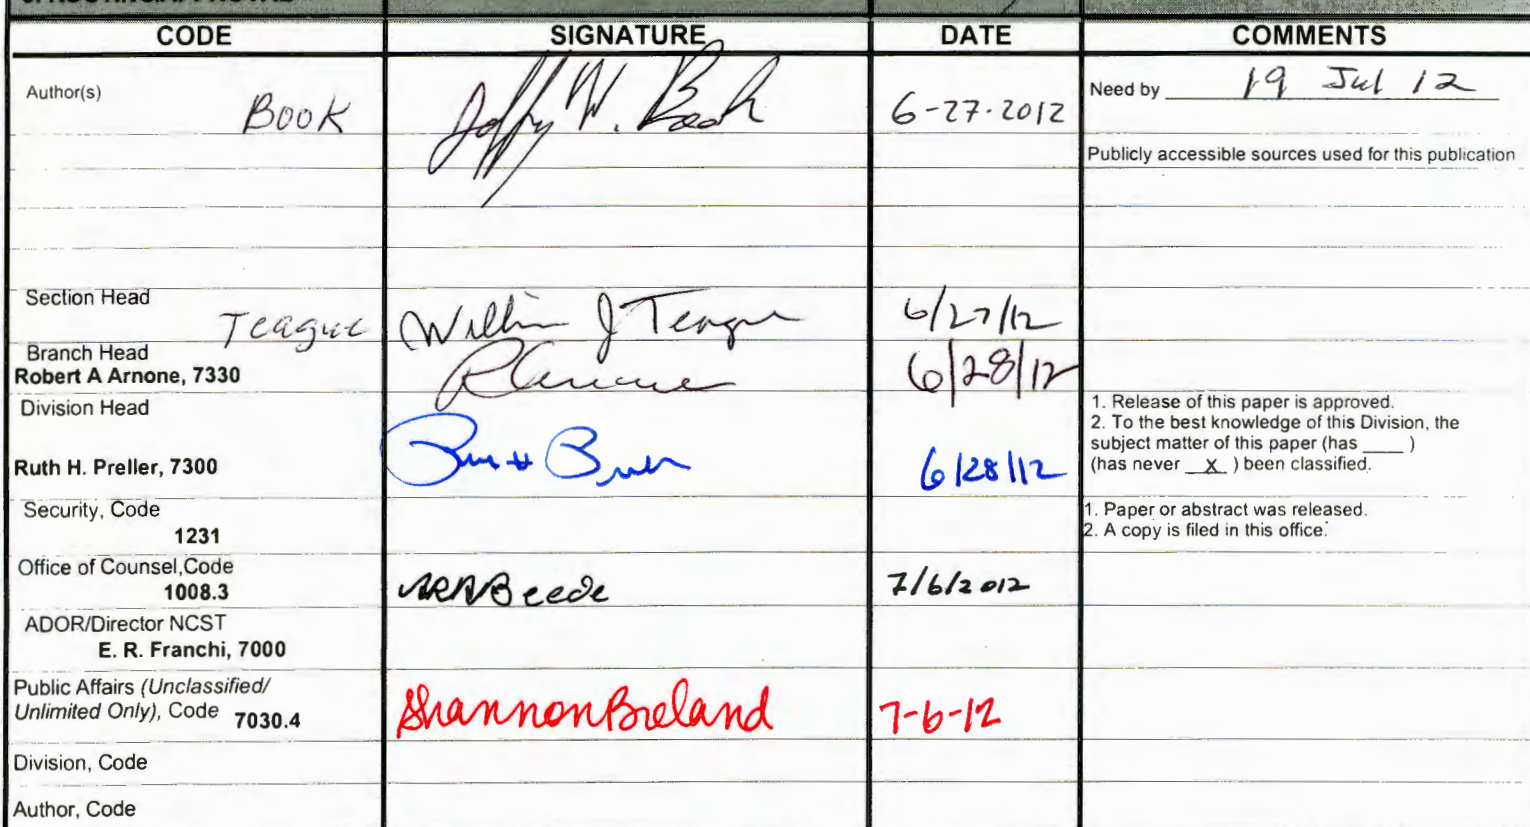 CODE SIGNATURE DATE COMMENTS
Author(s) Book Jeffrey W. Book 6-27-2012 Need by 19 Jul 12
Publicly accessible sources used for this publication
Section Head
Teague William J Teague 6/27/12
Branch Head
Robert A Arnone, 7330 6/28/12
Division Head
1. Release of this paper is approved.
2. To the best knowledge of this Division, the
subject matter of this paper (has ____ )
Ruth H. Preller, 7300 6/28/12 (has never __X_ ) been classified.
Security, Code
1231
1. Paper or abstract was released.
2. A copy is filed in this office.
Office of Counsel,Code
1008.3 Beede 7/6/2012
ADOR/Director NCST
E. R. Franchi, 7000
Public Affairs (Unclassified/
Unlimited Only), Code 7030.4 Shannon Breland 7-6-12
Division, Code
Author, Code